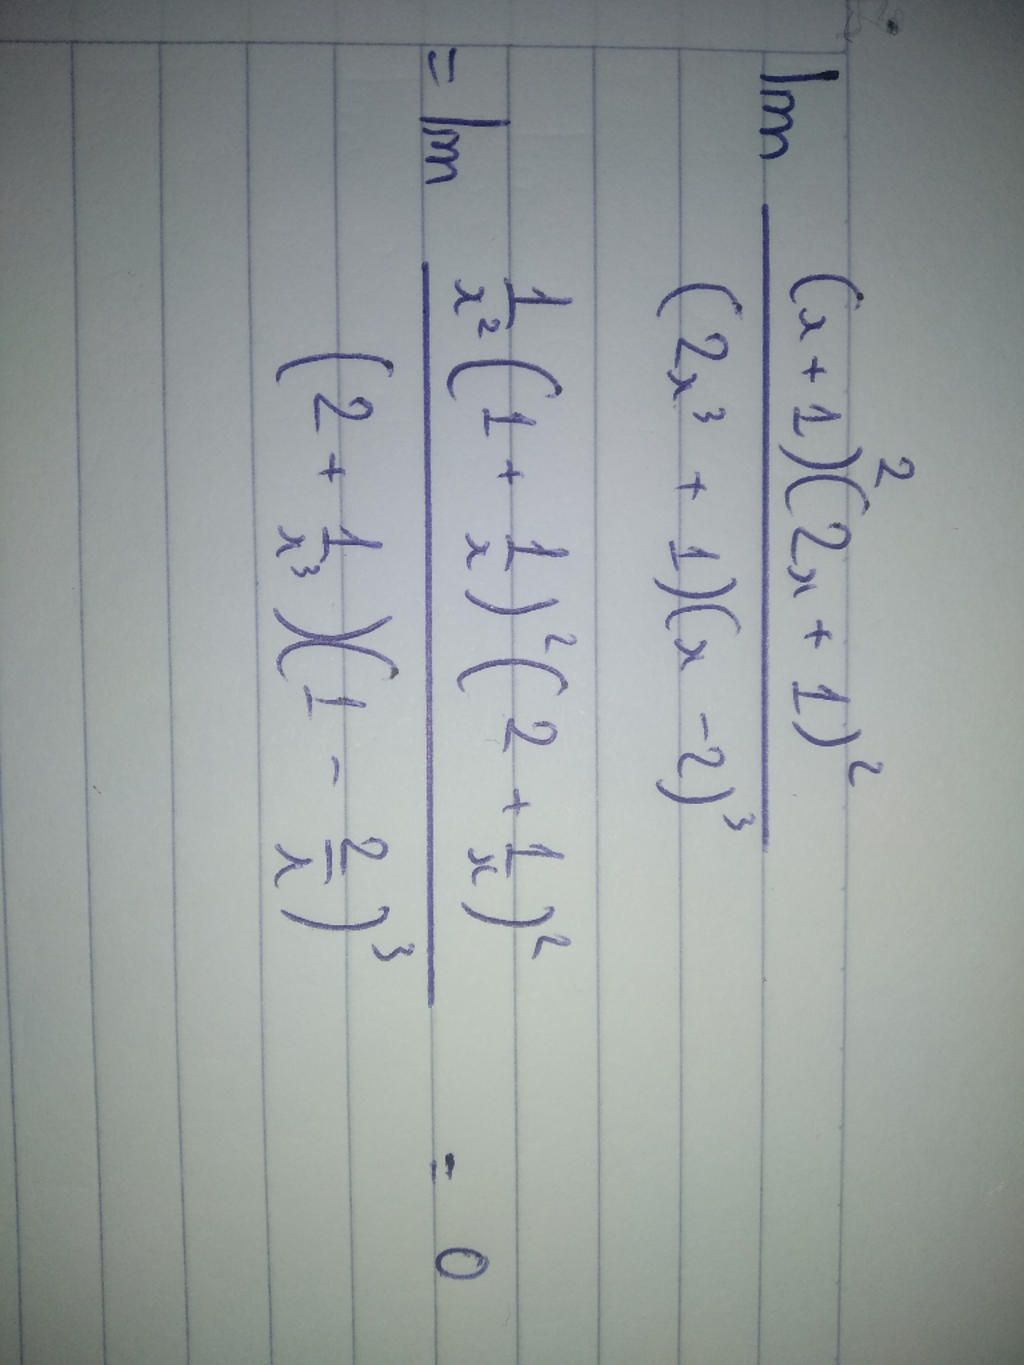 lim (x+1)²(2x+1)²
(2x³ + 1)(x -2)³
= lim 1/x² (1 + 1/x)² (2 + 1/x)²
(2 + 1/x³)(1 - 2/x)³ = 0